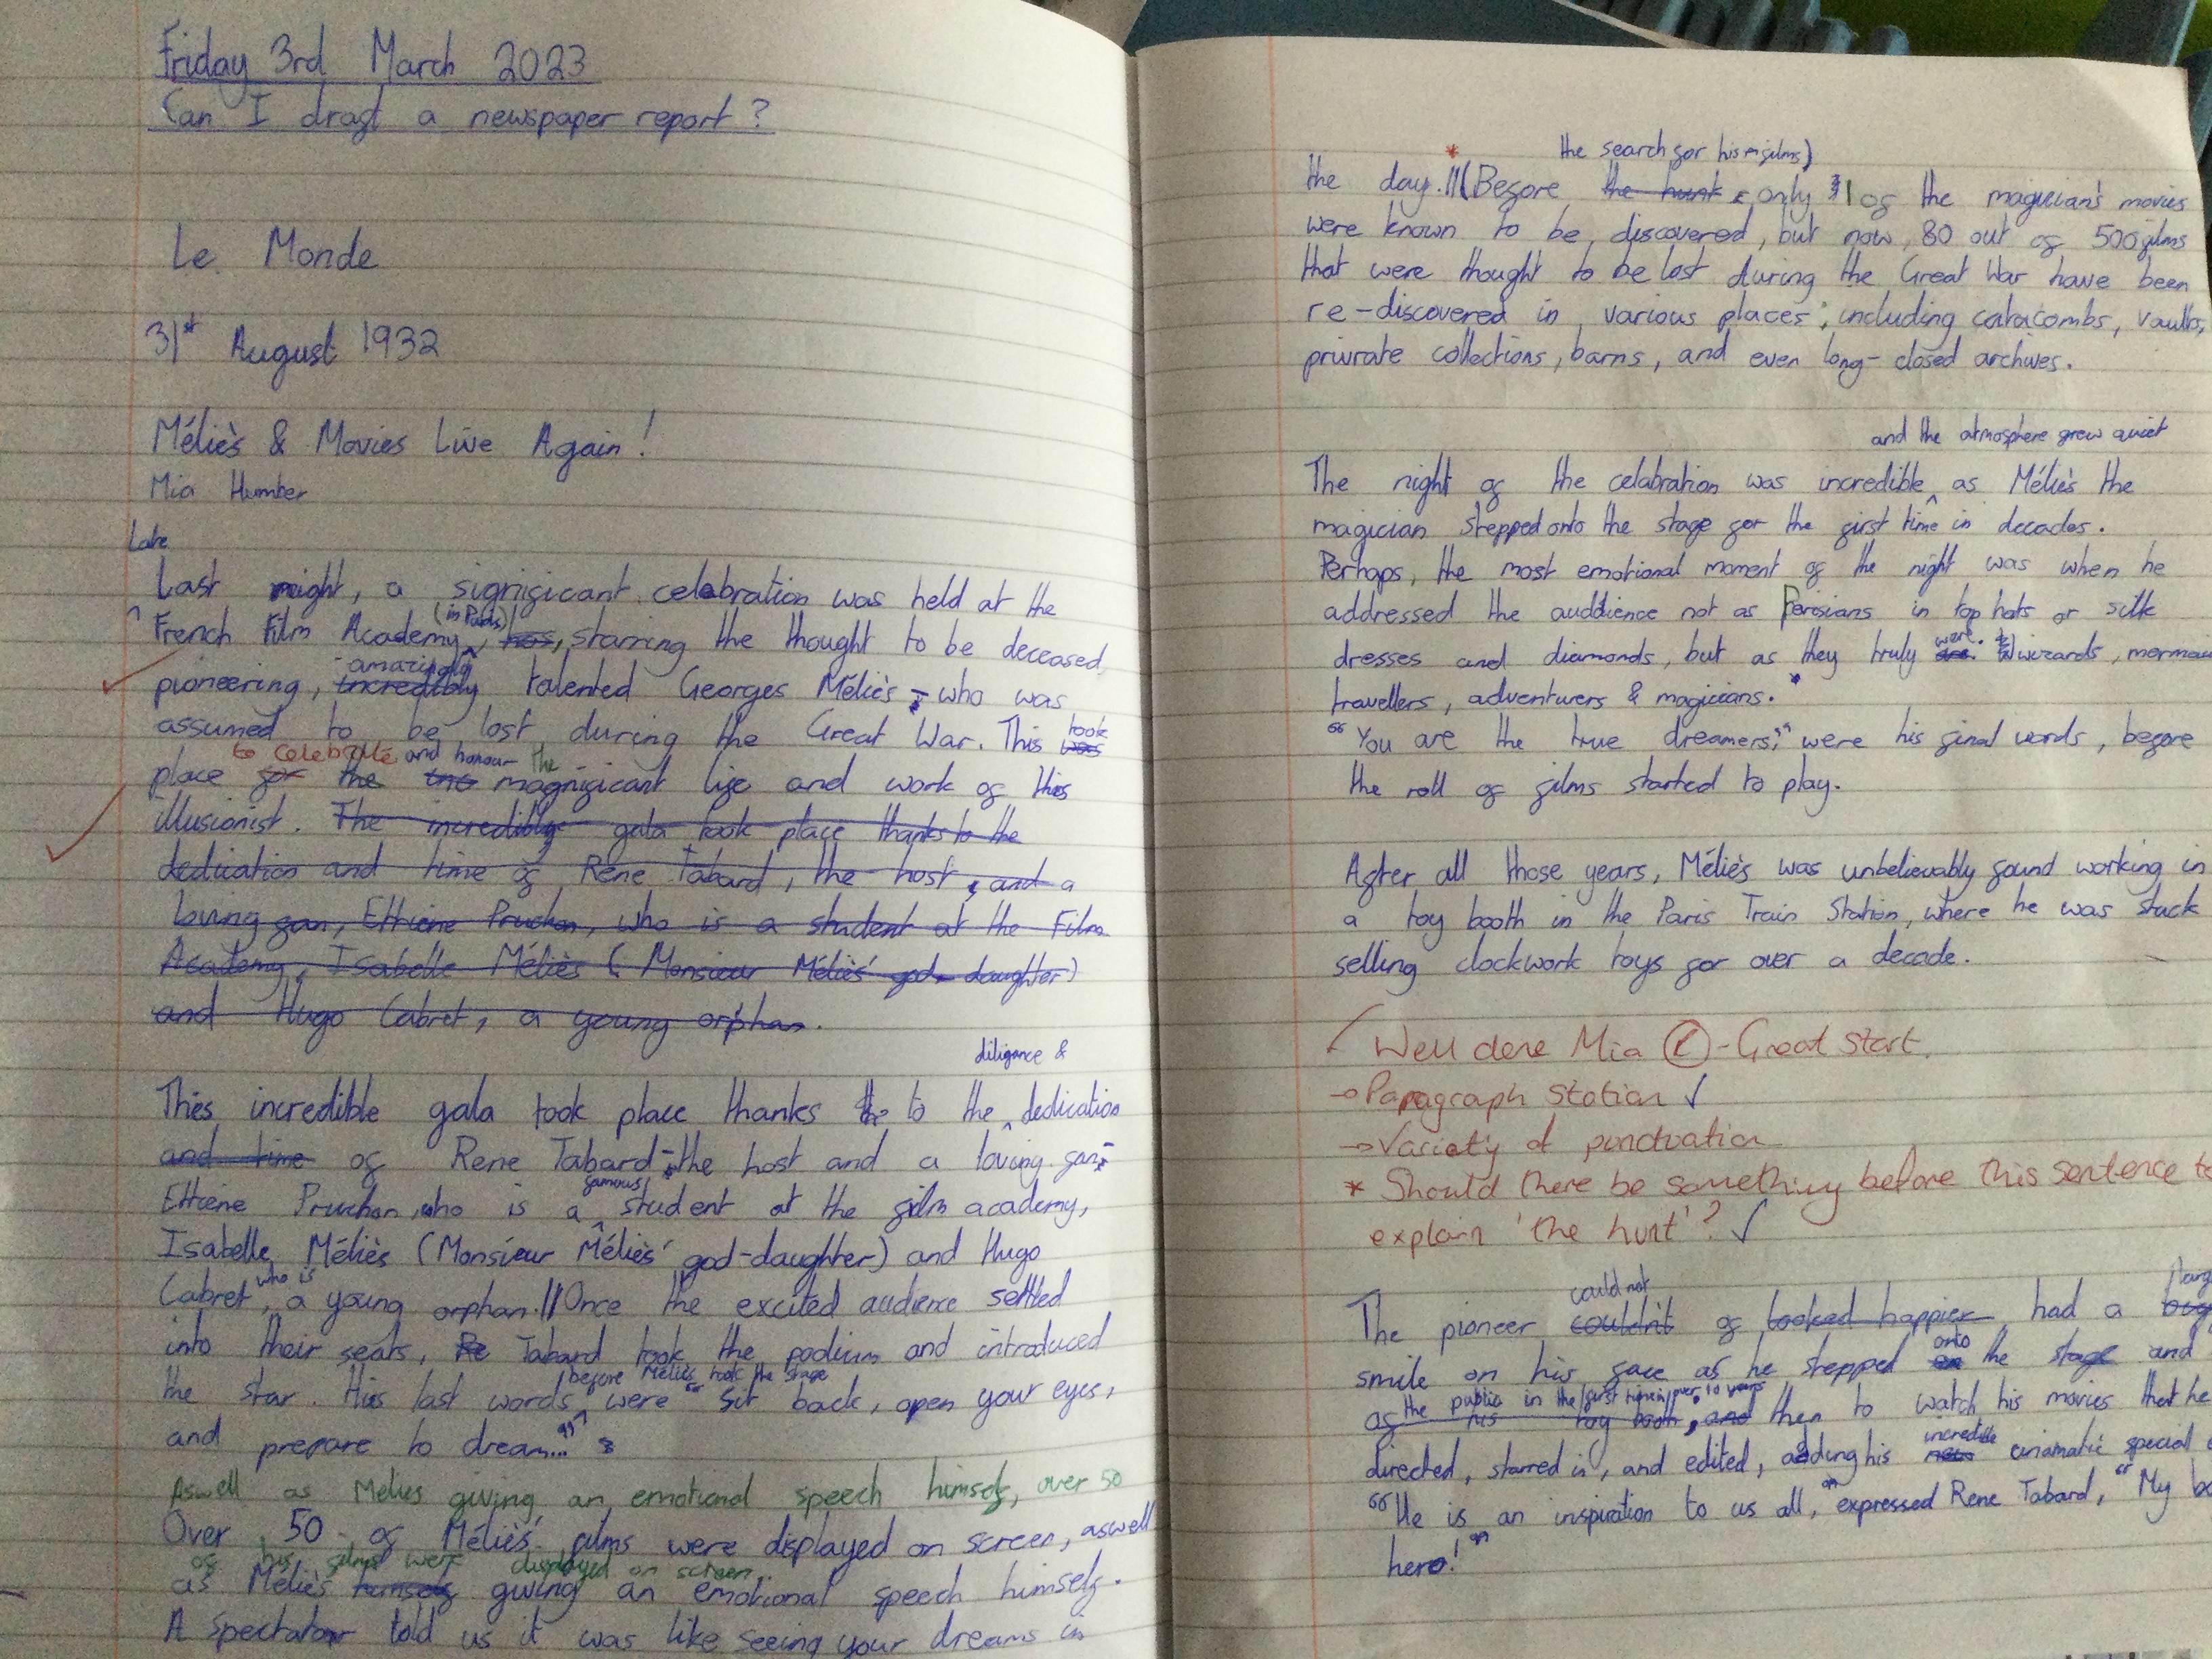 Friday 3rd March 2023
Can I draft a newspaper report?
Le Monde
31st August 1932
Méliès & Movies Live Again!
Mia Humber
Late
Last night, a significant celebration was held at the
(in Paris)
French Film Academy, has, starring the thought to be deceased,
amazingly
pioneering, incredibly talented Georges Méliès - who was
assumed to be lost during the Great War. This was
took
to celebrate and honour the
place for the the magnificant life and work of this
illusionist. The incredibly gala took place thanks to the
dedication and time of Rene Tabard, the host, and a
loving fan, Ethiene Pruchon, who is a student at the Film
Academy, Isabelle Méliès (Monsieur Méliès' god-daughter)
and Hugo Cabret, a young orphan.
diligance &
This incredible gala took place thanks to the dedication
and time of Rene Tabard - the host and a loving fan -
famous
Ethiene Pruchon, who is a student at the film academy,
Isabelle Méliès (Monsieur Méliès' god-daughter) and Hugo
who is
Cabret, a young orphan.//Once the excited audience settled
into their seats, Re Tabard took the podium and introduced
before Méliès took the stage
the star. His last words were "Sit back, open your eyes,
and prepare to dream..."
Aswell as Méliès giving an emotional speech himself, over 50
Over 50 of Méliès' films were displayed on screen, aswell
of his films were displayed on screen.
as Méliès himself giving an emotional speech himself.
A spectator told us it was like seeing your dreams in
the search for his films)
*
the day.//(Before the hunt only 31 of the magician's movies
were known to be discovered, but now, 80 out of 500 films
that were thought to be lost during the Great War have been
re-discovered in various places; including catacombs, vaults,
private collections, barns, and even long-closed archives.
and the atmosphere grew quiet
The night of the celabration was incredible as Méliès the
magician stepped onto the stage for the first time in decades.
Perhaps, the most emotional moment of the night was when he
addressed the auddience not as Parisians in top hats or silk
were.
dresses and diamonds, but as they truly are. wizards,
travellers, adventurers & magicians.
"You are the true dreamers," were his final words, before
the roll of films started to play.
After all those years, Méliès was unbelievably found working in
a toy booth in the Paris Train Station, where he was stuck
selling clockwork toys for over a decade.
Well done Mia - Great start.
→ Paragraph Station ✓
→ Variety of punctuation
* Should there be something before this sentence to
explain 'the hunt'? ✓
could not
The pioneer couldn't of looked happier, had a
onto
smile on his face as he stepped on the stage and
the public in the first time in over 10 years
as his toy booth, and then to watch his movies that he
incredible
directed, starred in, and edited, adding his new cinamatic special
"He is an inspiration to us all," expressed Rene Tabard, "My
hero!"